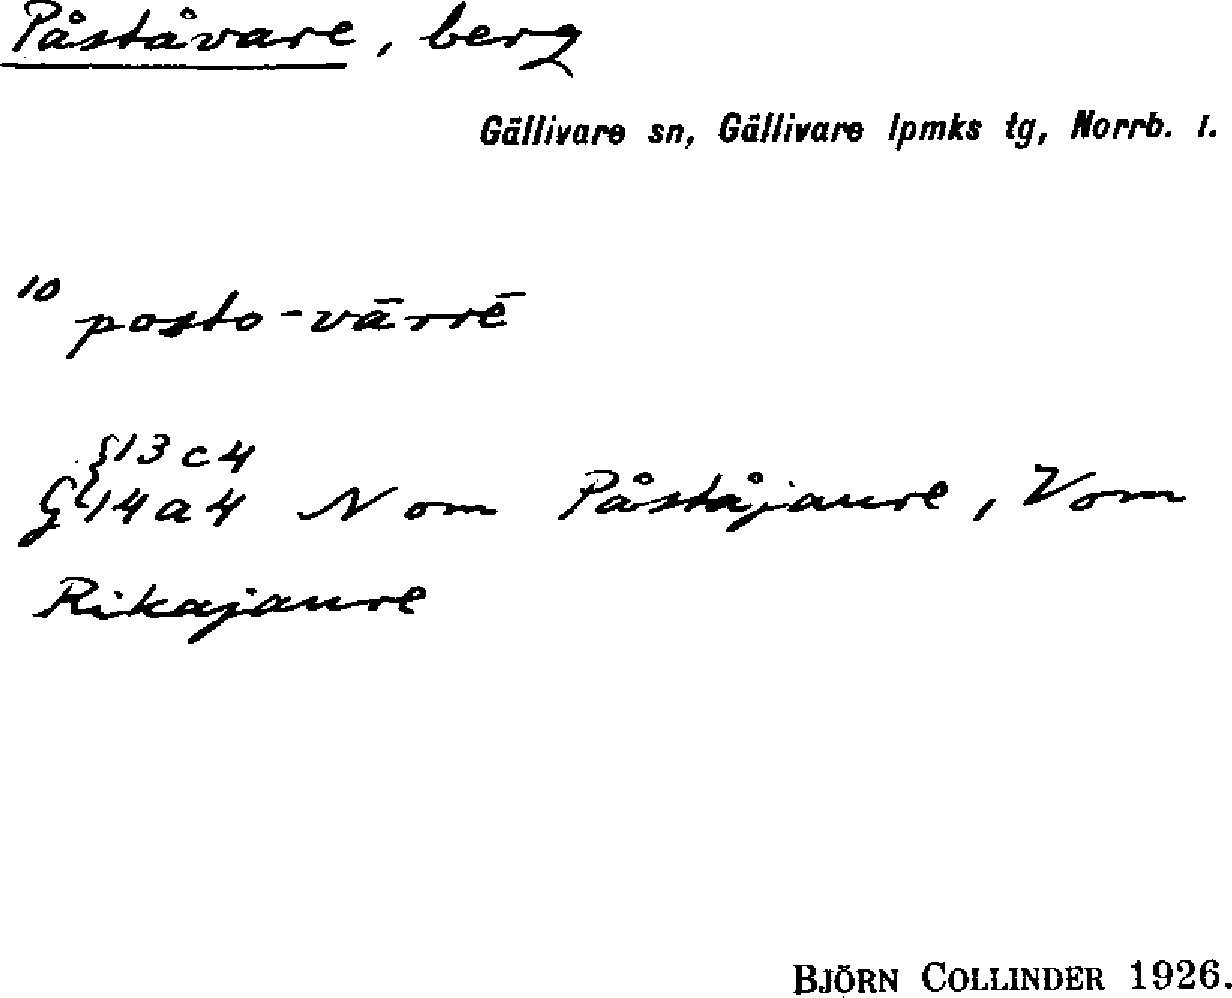 Påståvare, berg
Gällivare sn, Gällivare lpmks tg, Norrb. l.
10 posto-vārrē
G {13 c 4
14 a 4 N om Påståjaure, V om
Rikajaure
BJÖRN COLLINDER 1926.